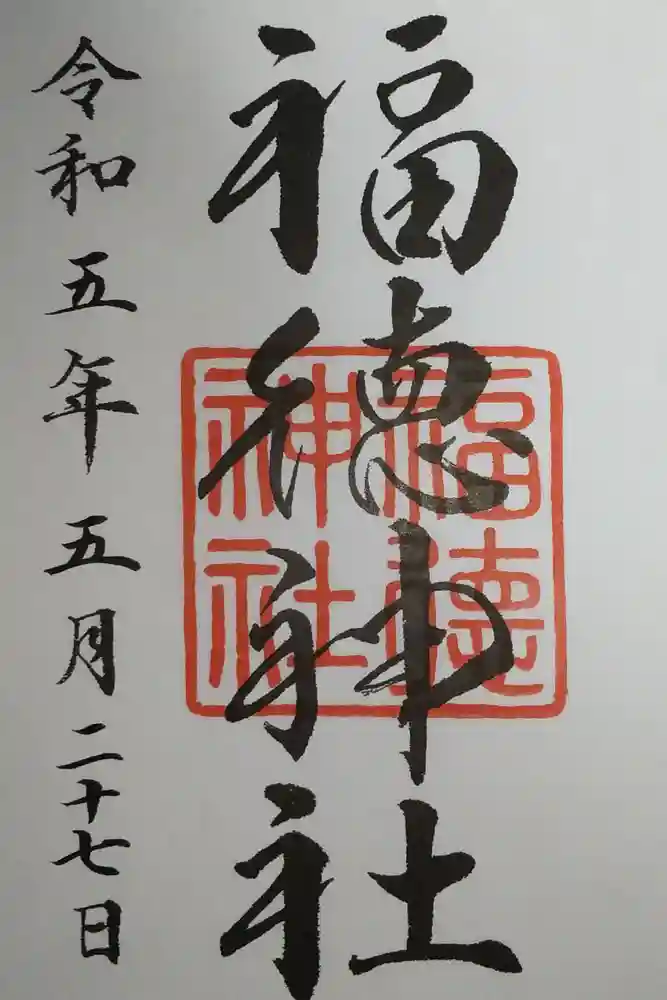 福徳神社
福徳神社
令和五年五月二十七日